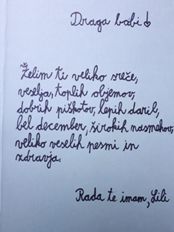 Draga babi
Želim ti veliko sreče,
veselja, toplih objemov,
dobrih piškotov, lepih daril,
bel december, širokih nasmehov,
veliko veselih pesmi in
zdravja.
Rada te imam, Lili